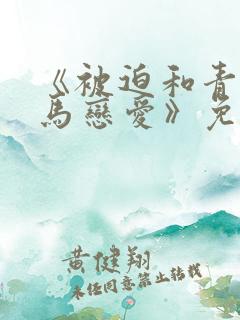 《被迫和青
馬戀愛》免
黄健翔
未经同意禁止转载